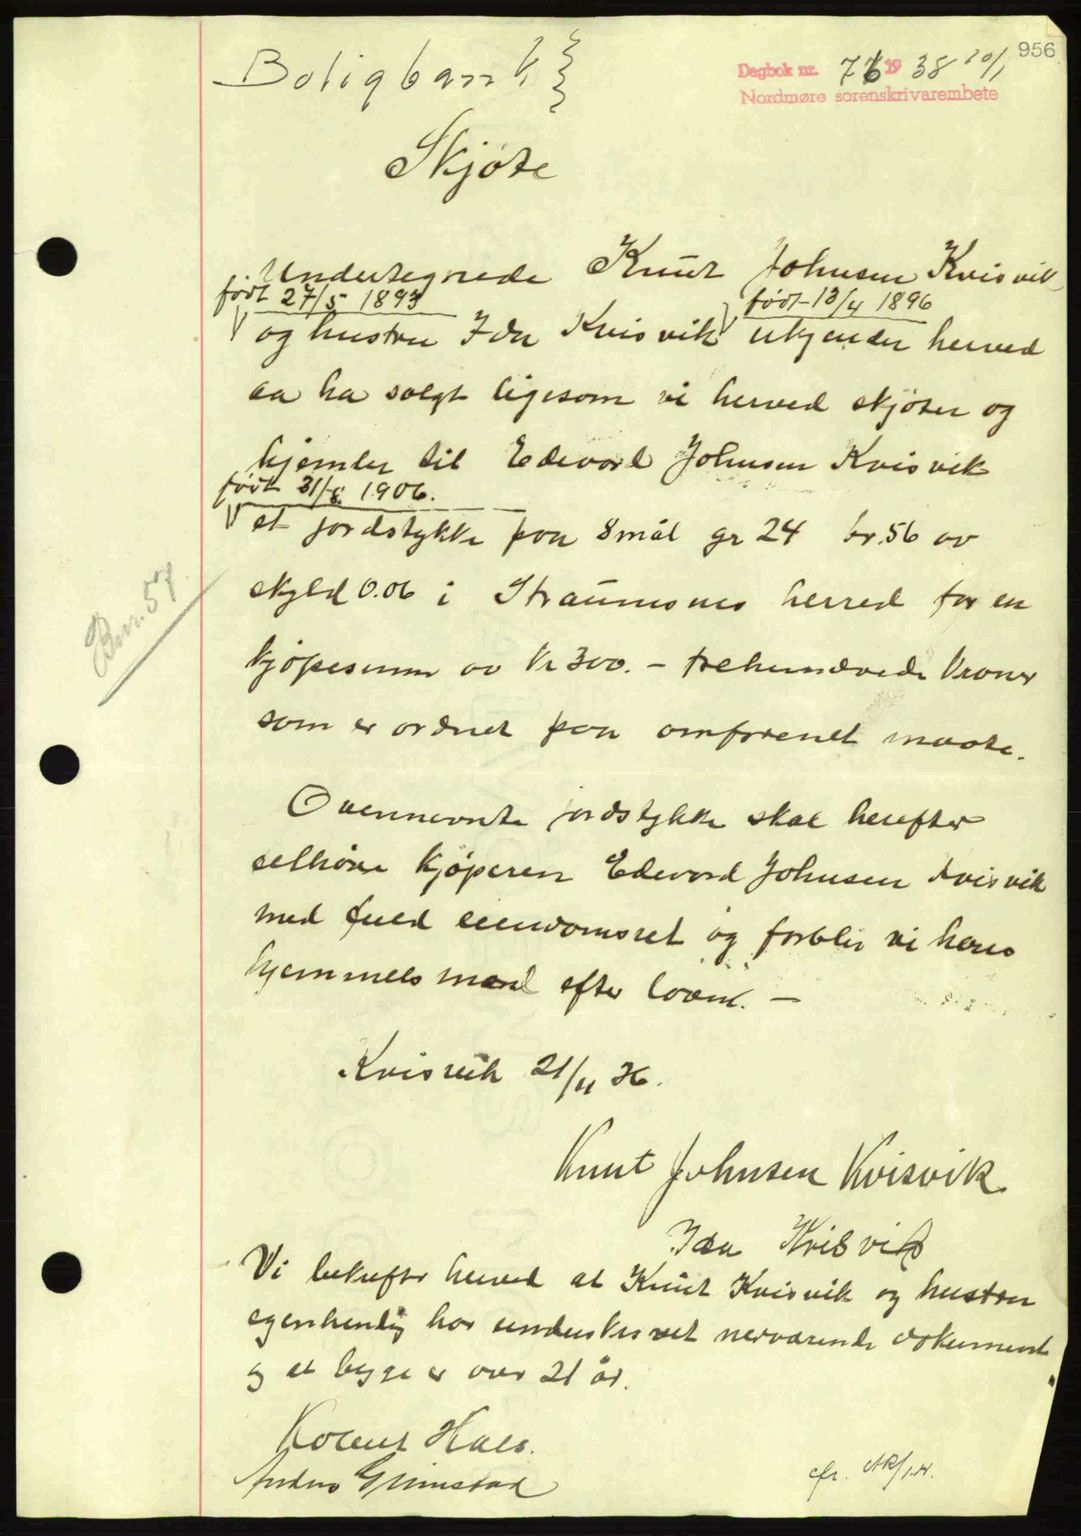 956
Boligbank
Dagbok nr. 76 19 38 20/1
Nordmøre sorenskrivarembete
Skjøte
Undertegnede Knut Johnsen Kvisvik
født 27/5 1893 født 13/4 1896
og hustru Ida Kvisvik utkjender herved
aa ha solgt ligesom vi herved skjøter og
hjemler til Edevard Johnsen Kvisvik
født 31/8 1906.
et jordstykke paa 8 mål gr 24 br. 56 av
skyld 0.06 i Straumsnes herred for en
Bnr. 57
kjøpesum av Kr 300. – trehundrede kroner
som er ordnet paa omforenet maate.
Ovennevnte jordstykke skal herefter
tilhøre kjøperen Edevard Johnsen Kvisvik
med fuld eiendomsret og forblir vi hans
hjemmels mænd efter loven. –
Kvisvik 21/11 36.
Knut Johnsen Kvisvik
Ida Kvisvik
Vi bekrefter herved at Knut Kvisvik og hustru
egenhendig har underskrevet nerværende dokument
og at begge er over 21 år.
Hals.
Anders Grimstad
cfr.